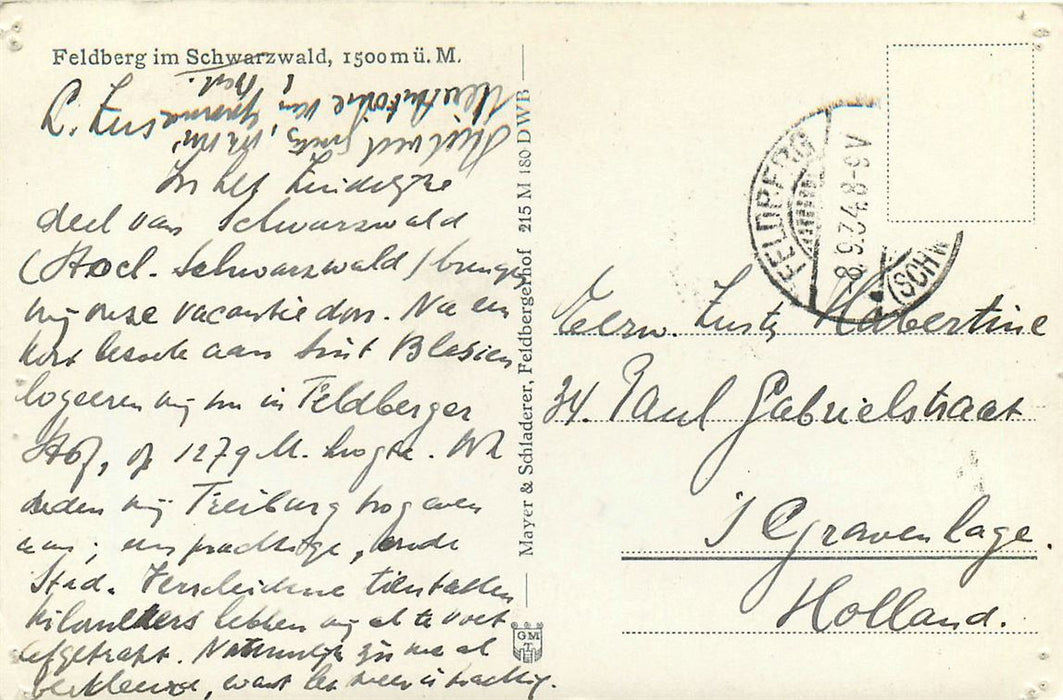 Feldberg im Schwarzwald, 1500 m ü. M.
L. Zus
In het Zuidelijke
deel van Schwarzwald
(Hoch. Schwarzwald) brengen
wij onze vacantie door. Na een
kort bezoek aan Sint Blasien
logeeren wij nu in Feldberger
Hof, op 1279 M. hoogte.
deden wij Freiburg nog even
aan; een prachtige, oude
Stad. Verscheidene tientallen
kilometers hebben wij al te voet
afgetrapt. Natuurlijk zijn we al
want het weer is prachtig.
Mayer & Schladerer, Feldbergerhof 215 M 180 DWB
GMT
FELDBERG
(SCHW
-8.9.34.8-9V
Eerw. Zuster Hubertine
34. Paul Gabrielstraat
's Gravenhage.
Holland.